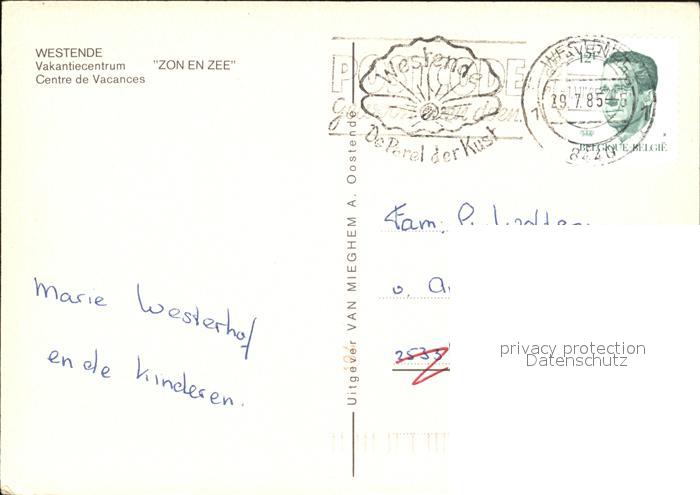 WESTENDE
Vakantiecentrum "ZON EN ZEE"
Centre de Vacances
Westende
De Parel der Kust
WESTENDE
29.7.85
8440
BELGIQUE-BELGIË
Uitgever VAN MIEGHEM A. Oostende
Fam.
2533
Marie Westerhof
en de kinderen.
privacy protection
Datenschutz